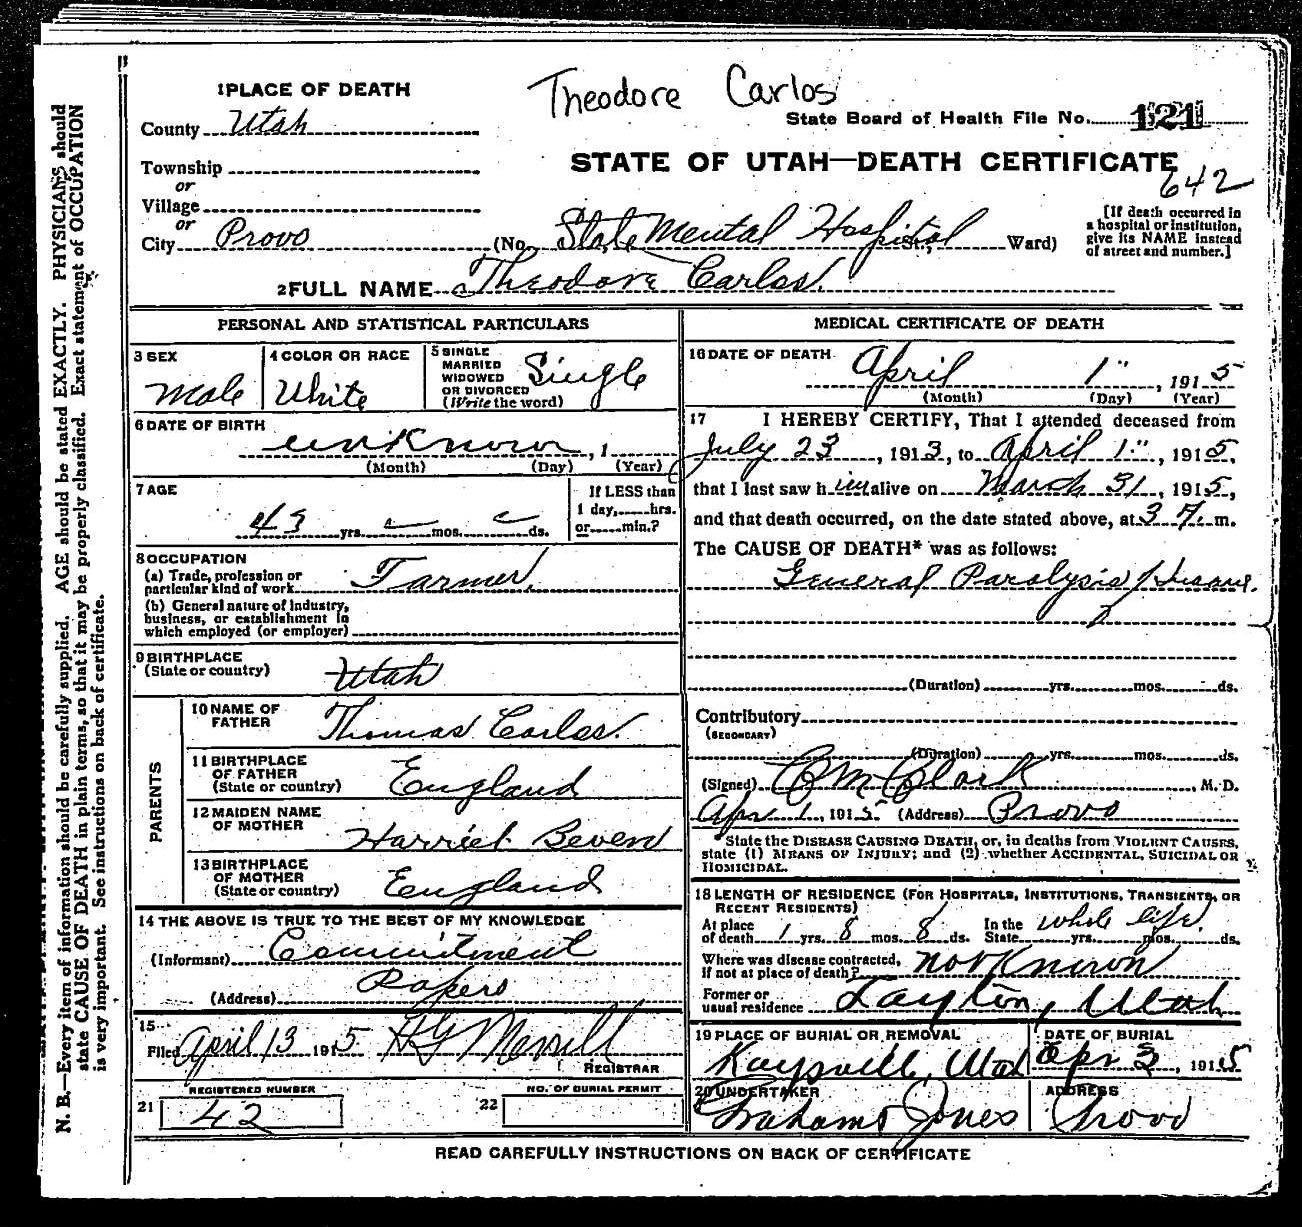 Theodore Carlos
1 PLACE OF DEATH
County Utah
State Board of Health File No. 121
Township
or
Village
or
City Provo
STATE OF UTAH—DEATH CERTIFICATE
642
(No. State Mental Hospital, Ward)
[If death occurred in
a hospital or institution,
give its NAME instead
of street and number.]
2 FULL NAME Theodore Carlos.
PERSONAL AND STATISTICAL PARTICULARS
3 SEX
Male
4 COLOR OR RACE
White
5 SINGLE
MARRIED
WIDOWED
OR DIVORCED
(Write the word)
Single
6 DATE OF BIRTH
unknown, 1
(Month) (Day) (Year)
7 AGE
43 yrs. mos. ds.
If LESS than
1 day, hrs.
or min.?
8 OCCUPATION
(a) Trade, profession or
particular kind of work Farmer.
(b) General nature of industry,
business, or establishment in
which employed (or employer)
9 BIRTHPLACE
(State or country) Utah
PARENTS
10 NAME OF
FATHER Thomas Carlos.
11 BIRTHPLACE
OF FATHER
(State or country) England
12 MAIDEN NAME
OF MOTHER Harriet
13 BIRTHPLACE
OF MOTHER
(State or country) England
14 THE ABOVE IS TRUE TO THE BEST OF MY KNOWLEDGE
(Informant) Commitment
(Address) Papers
15
Filed April 13 1915 H G Merrill
REGISTRAR
REGISTERED NUMBER
21 42
NO. OF BURIAL PERMIT
22
MEDICAL CERTIFICATE OF DEATH
16 DATE OF DEATH
April 1", 1915
(Month) (Day) (Year)
17 I HEREBY CERTIFY, That I attended deceased from
July 23, 1913, to April 1", 1915,
that I last saw him alive on March 31, 1915,
and that death occurred, on the date stated above, at 3 m.
The CAUSE OF DEATH* was as follows:
General Paralysis Insane.
(Duration) yrs. mos. ds.
Contributory
(SECONDARY)
(Duration) yrs. mos. ds.
(Signed) C M Clark M. D.
Apr 1, 1915 (Address) Provo
State the DISEASE CAUSING DEATH, or, in deaths from VIOLENT CAUSES,
state (1) MEANS OF INJURY; and (2) whether ACCIDENTAL, SUICIDAL OR
HOMICIDAL.
18 LENGTH OF RESIDENCE (FOR HOSPITALS, INSTITUTIONS, TRANSIENTS, OR
RECENT RESIDENTS)
At place
of death 1 yrs. 8 mos. 8 ds.
In the
State whole life. yrs. mos. ds.
Where was disease contracted,
If not at place of death? not known
Former or
usual residence Layton, Utah
19 PLACE OF BURIAL OR REMOVAL
Kaysville, Utah
DATE OF BURIAL
Apr 3, 1915
20 UNDERTAKER
Grahams Jones
ADDRESS
Provo
READ CAREFULLY INSTRUCTIONS ON BACK OF CERTIFICATE
N. B.—Every item of information should be carefully supplied. AGE should be stated EXACTLY. PHYSICIANS should
state CAUSE OF DEATH in plain terms, so that it may be properly classified. Exact statement of OCCUPATION
is very important. See instructions on back of certificate.